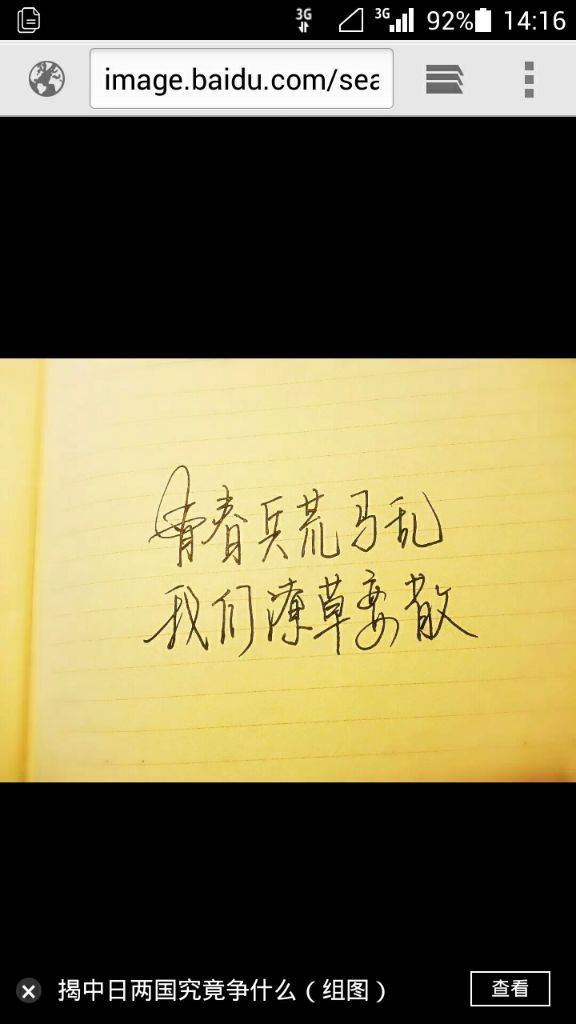 3G 3G 92% 14:16
image.baidu.com/sea
青春兵荒马乱
我们潦草要散
揭中日两国究竟争什么(组图)
查看